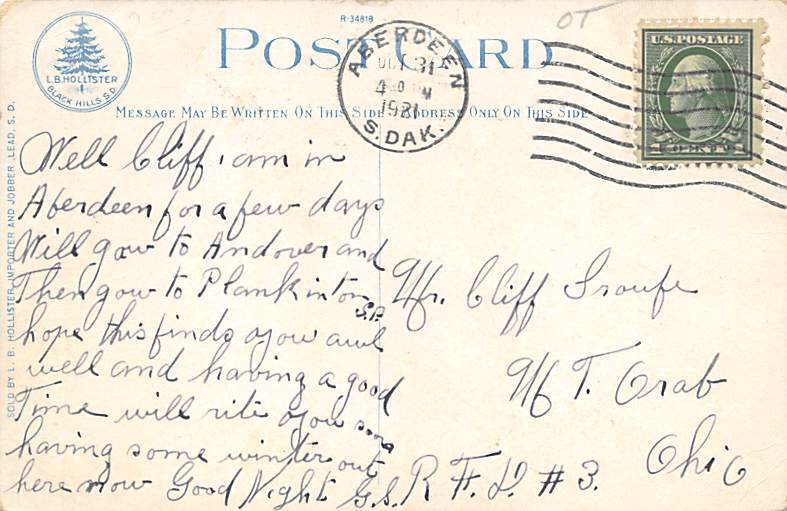 R-34818
OT
POST CARD
L.B. HOLLISTER
BLACK HILLS S.D.
ABERDEEN
31
4
1921
S. DAK.
U.S. POSTAGE
MESSAGE MAY BE WRITTEN ON THIS SIDE
ADDRESS ONLY ON THIS SIDE
SOLD BY L. B. HOLLISTER, IMPORTER AND JOBBER, LEAD, S. D.
Well Cliff i am in
Aberdeen for a few days
Will gow to Andover and
Then gow to Plankinton
S.D.
hope this finds you awl
well and having a good
Time will rite you soon
having some winter out
here now Good Night G.S.
Mr. Cliff Sroufe
Mt. Orab
Ohio
R F. D # 3.